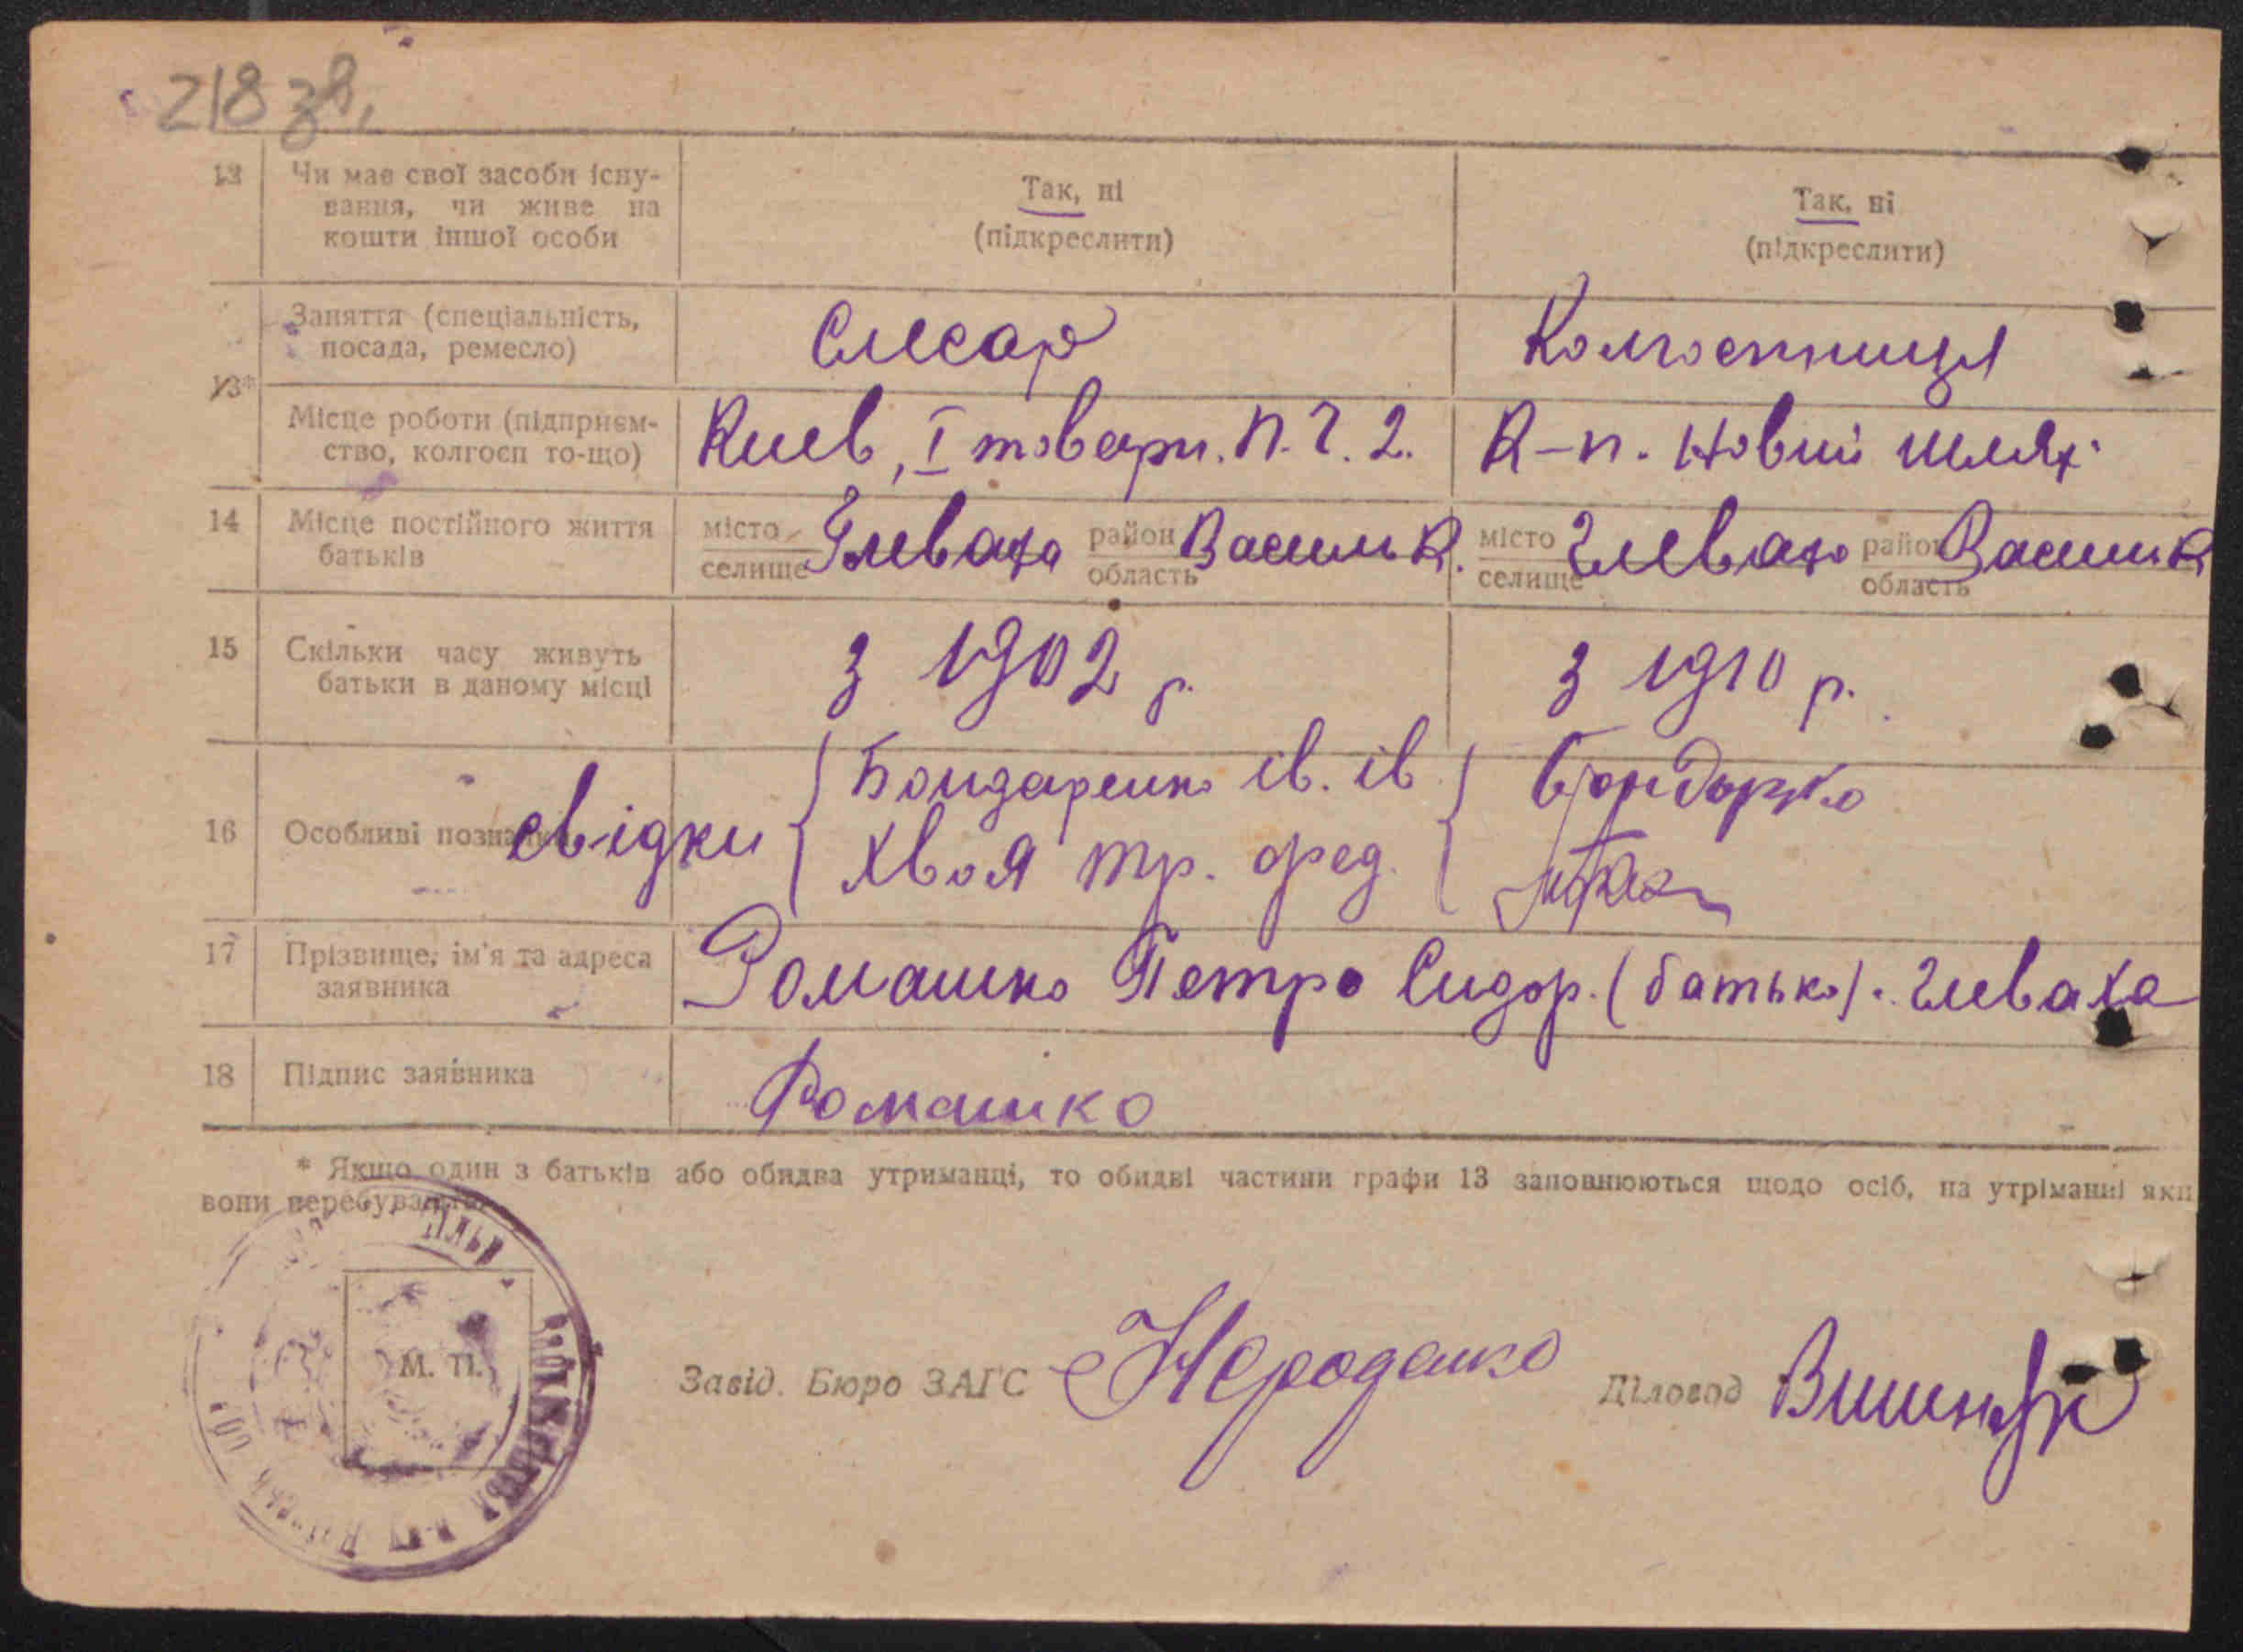 218 зв.
12 Чи має свої засоби існу-
вання, чи живе на
кошти іншої особи
Так, ні
(підкреслити)
Так, ні
(підкреслити)
13*
Заняття (спеціальність,
посада, ремесло)
Слесар
Колгоспниця
Місце роботи (підприєм-
ство, колгосп то-що)
Киев, I товарн. П.Ч. 2.
К-п. Новий шлях
14 Місце постійного життя
батьків
місто
селище
Глеваха
район
область
Васильк.
місто
селище
Глеваха
район
область
Васильк
15 Скільки часу живуть
батьки в даному місці
з 1902 р.
з 1910 р.
16 Особливі познаки
свідки
Бондаренко ів. ів
Хвоя тр. фед.
17 Прізвище, ім'я та адреса
заявника
Ромашко Петро Сидор. (батько). Глеваха
18 Підпис заявника
Ромашко
* Якщо один з батьків або обидва утриманці, то обидві частини графи 13 заповнюються щодо осіб, на утріманні яки
вони перебувають
М. П.
Завід. Бюро ЗАГС
Діловод